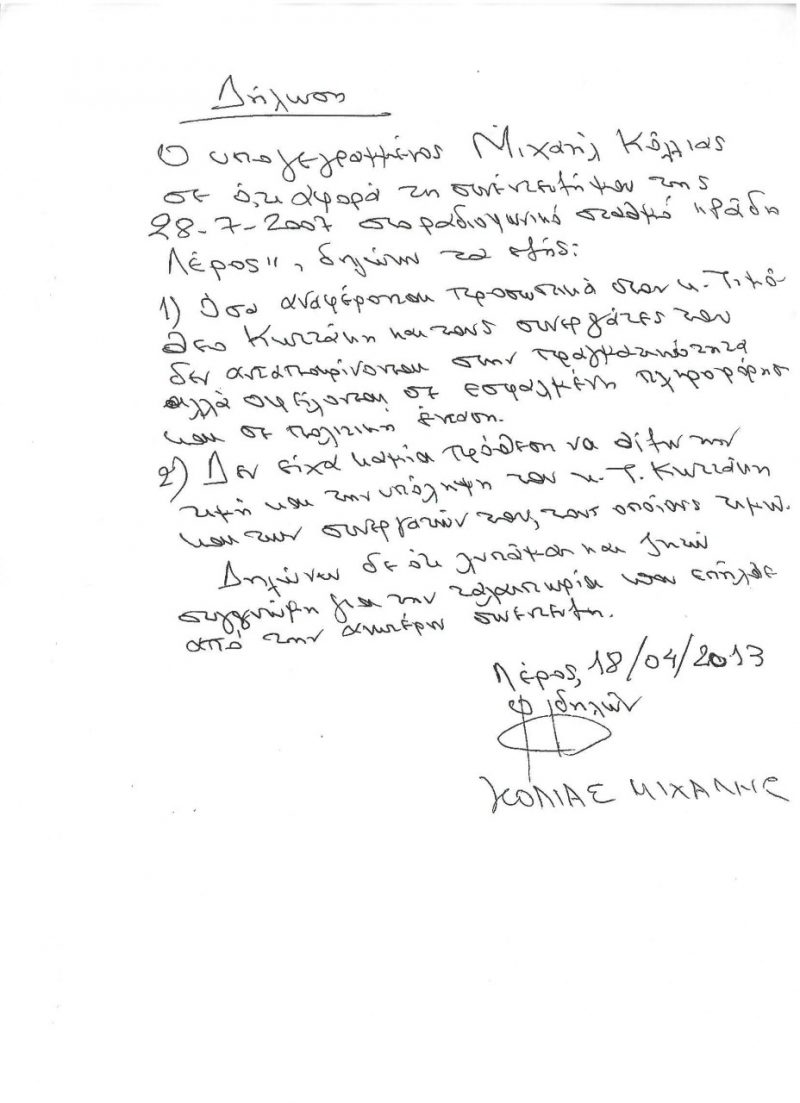 Δήλωση
Ο υπογεγραμμένος Μιχαήλ Κόλλιας
σε ό,τι αφορά τη συνέντευξή μου της
28-7-2007 στο ραδιοφωνικό σταθμό "Ράδιο
Λέρος", δηλώνω τα εξής:
1) Όσα αναφέρονται προσωπικά στον κ. Τιμό
θεο Κωττάκη και τους συνεργάτες του
δεν ανταποκρίνονται στην πραγματικότητα
αλλά οφείλονται σε εσφαλμένη πληροφόρηση
και σε πολιτική ένταση.
2) Δεν είχα καμία πρόθεση να θίξω την
τιμή και την υπόληψη του κ. Τ. Κωττάκη
και των συνεργατών του, τους οποίους τιμώ.
Δηλώνω δε ότι λυπάμαι και ζητώ
συγγνώμη για την ταλαιπωρία που επήλθε
από την ανωτέρω συνέντευξη.
Λέρος, 18/04/2013
Ο δηλών
ΚΟΛΙΑΣ ΜΙΧΑΛΗΣ